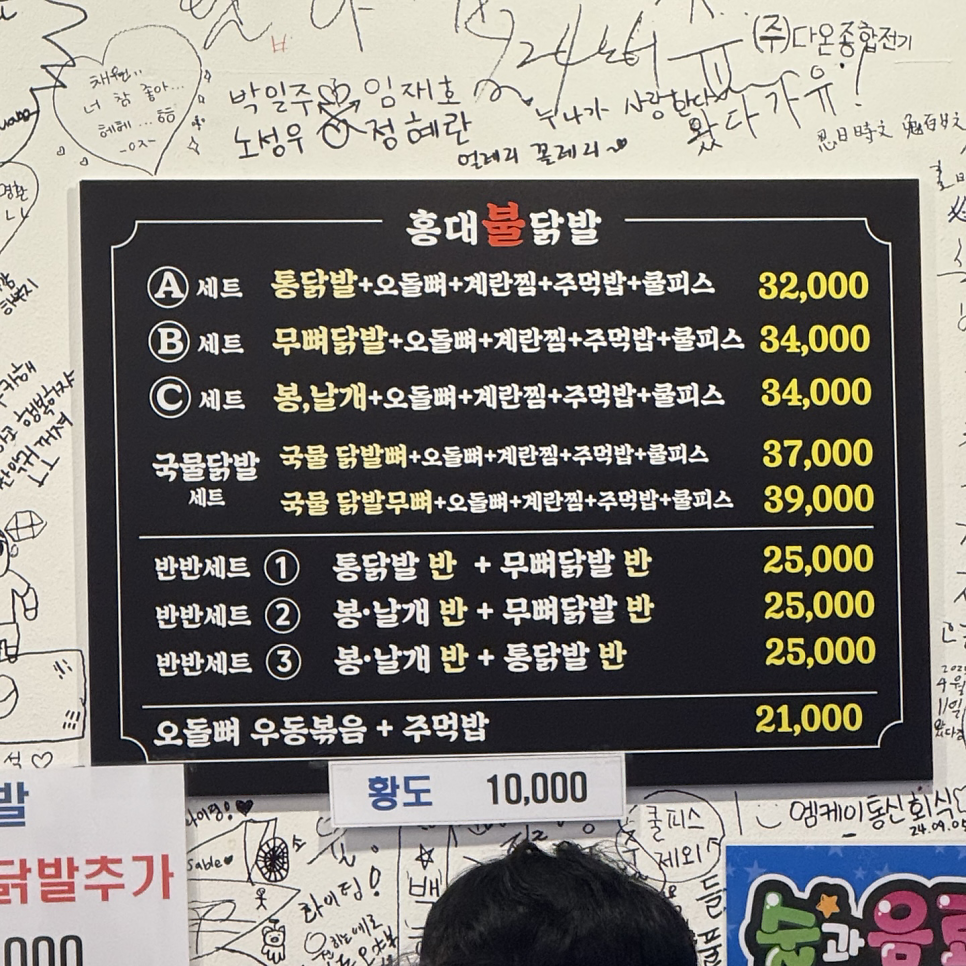 (주)다온종합전기
채원..
너 참 좋아...
헤헤...
박일주 임재호
노성우 정혜란
누나가 사랑한다
왔다가유!
얼레리 꼴레리~
홍대불닭발
A 세트 통닭발+오돌뼈+계란찜+주먹밥+쿨피스 32,000
B 세트 무뼈닭발+오돌뼈+계란찜+주먹밥+쿨피스 34,000
C 세트 봉,날개+오돌뼈+계란찜+주먹밥+쿨피스 34,000
국물닭발 세트 국물 닭발뼈+오돌뼈+계란찜+주먹밥+쿨피스 37,000
국물 닭발무뼈+오돌뼈+계란찜+주먹밥+쿨피스 39,000
반반세트 ① 통닭발 반 + 무뼈닭발 반 25,000
반반세트 ② 봉·날개 반 + 무뼈닭발 반 25,000
반반세트 ③ 봉·날개 반 + 통닭발 반 25,000
오돌뼈 우동볶음 + 주먹밥 21,000
황도 10,000
발
닭발추가
000
쿨피스
제외
엠케이통신회식♡
24.09.05
sable♥
화이팅!
술과음료